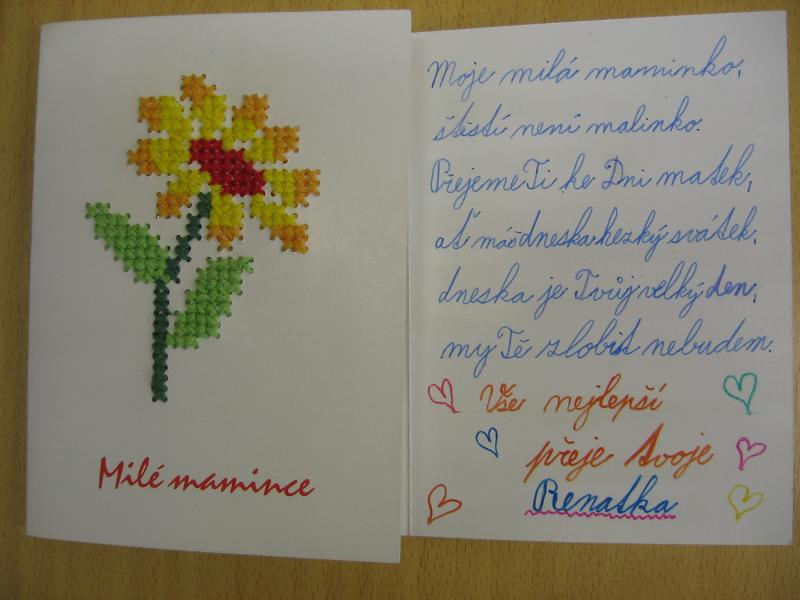 Milé mamince
Moje milá maminko,
štěstí není malinko.
Přejeme Ti ke Dni matek,
ať máš dneska hezký svátek,
dneska je Tvůj velký den,
my Tě zlobit nebudem.
Vše nejlepší
přeje tvoje
Renatka